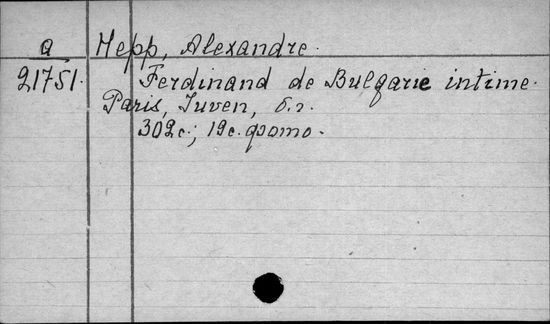 a Hepp, Alexandre.
21751. Ferdinand de Bulgarie intime.
Paris, Juven, б.г.
302с.; 19с. фото.